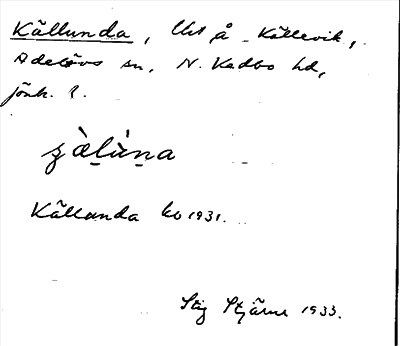 Källunda, Uts å Källevik,
Adelövs sn, N. Vedbo hd,
Jönk. l.
Källunda kb 1931.
Stig Stjärne 1933.